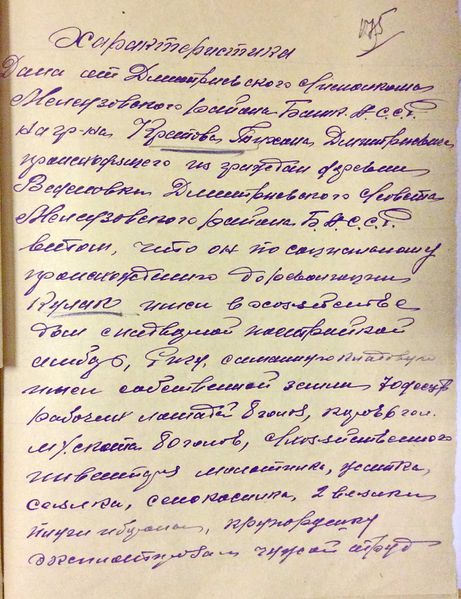 175
Характеристика
Дана от Дмитриевского сельсовета
Мелеузовского района Баш. А.С.С.Р.
на гр-на Кратова Тихона Дмитриевича
происходящего из граждан деревни
Веденовки Дмитриевского Совета
Мелеузовского района Б.А.С.С.Р.
в том, что он по социальному
происхождению до революции
Кулак имел в хозяйстве
дом с надворной постройкой
амбар, Ригу, сатинную
имел собственной земли 70 десят
рабочих лошадей 8 голов, коров 6 гол.
м/скота 80 голов, с/хозяйственного
инвентаря молотилка, жатка,
сеялка, сенокосилка, 2 веялки
плуги и бороны, крупорушку
эксплоатировал чужой труд